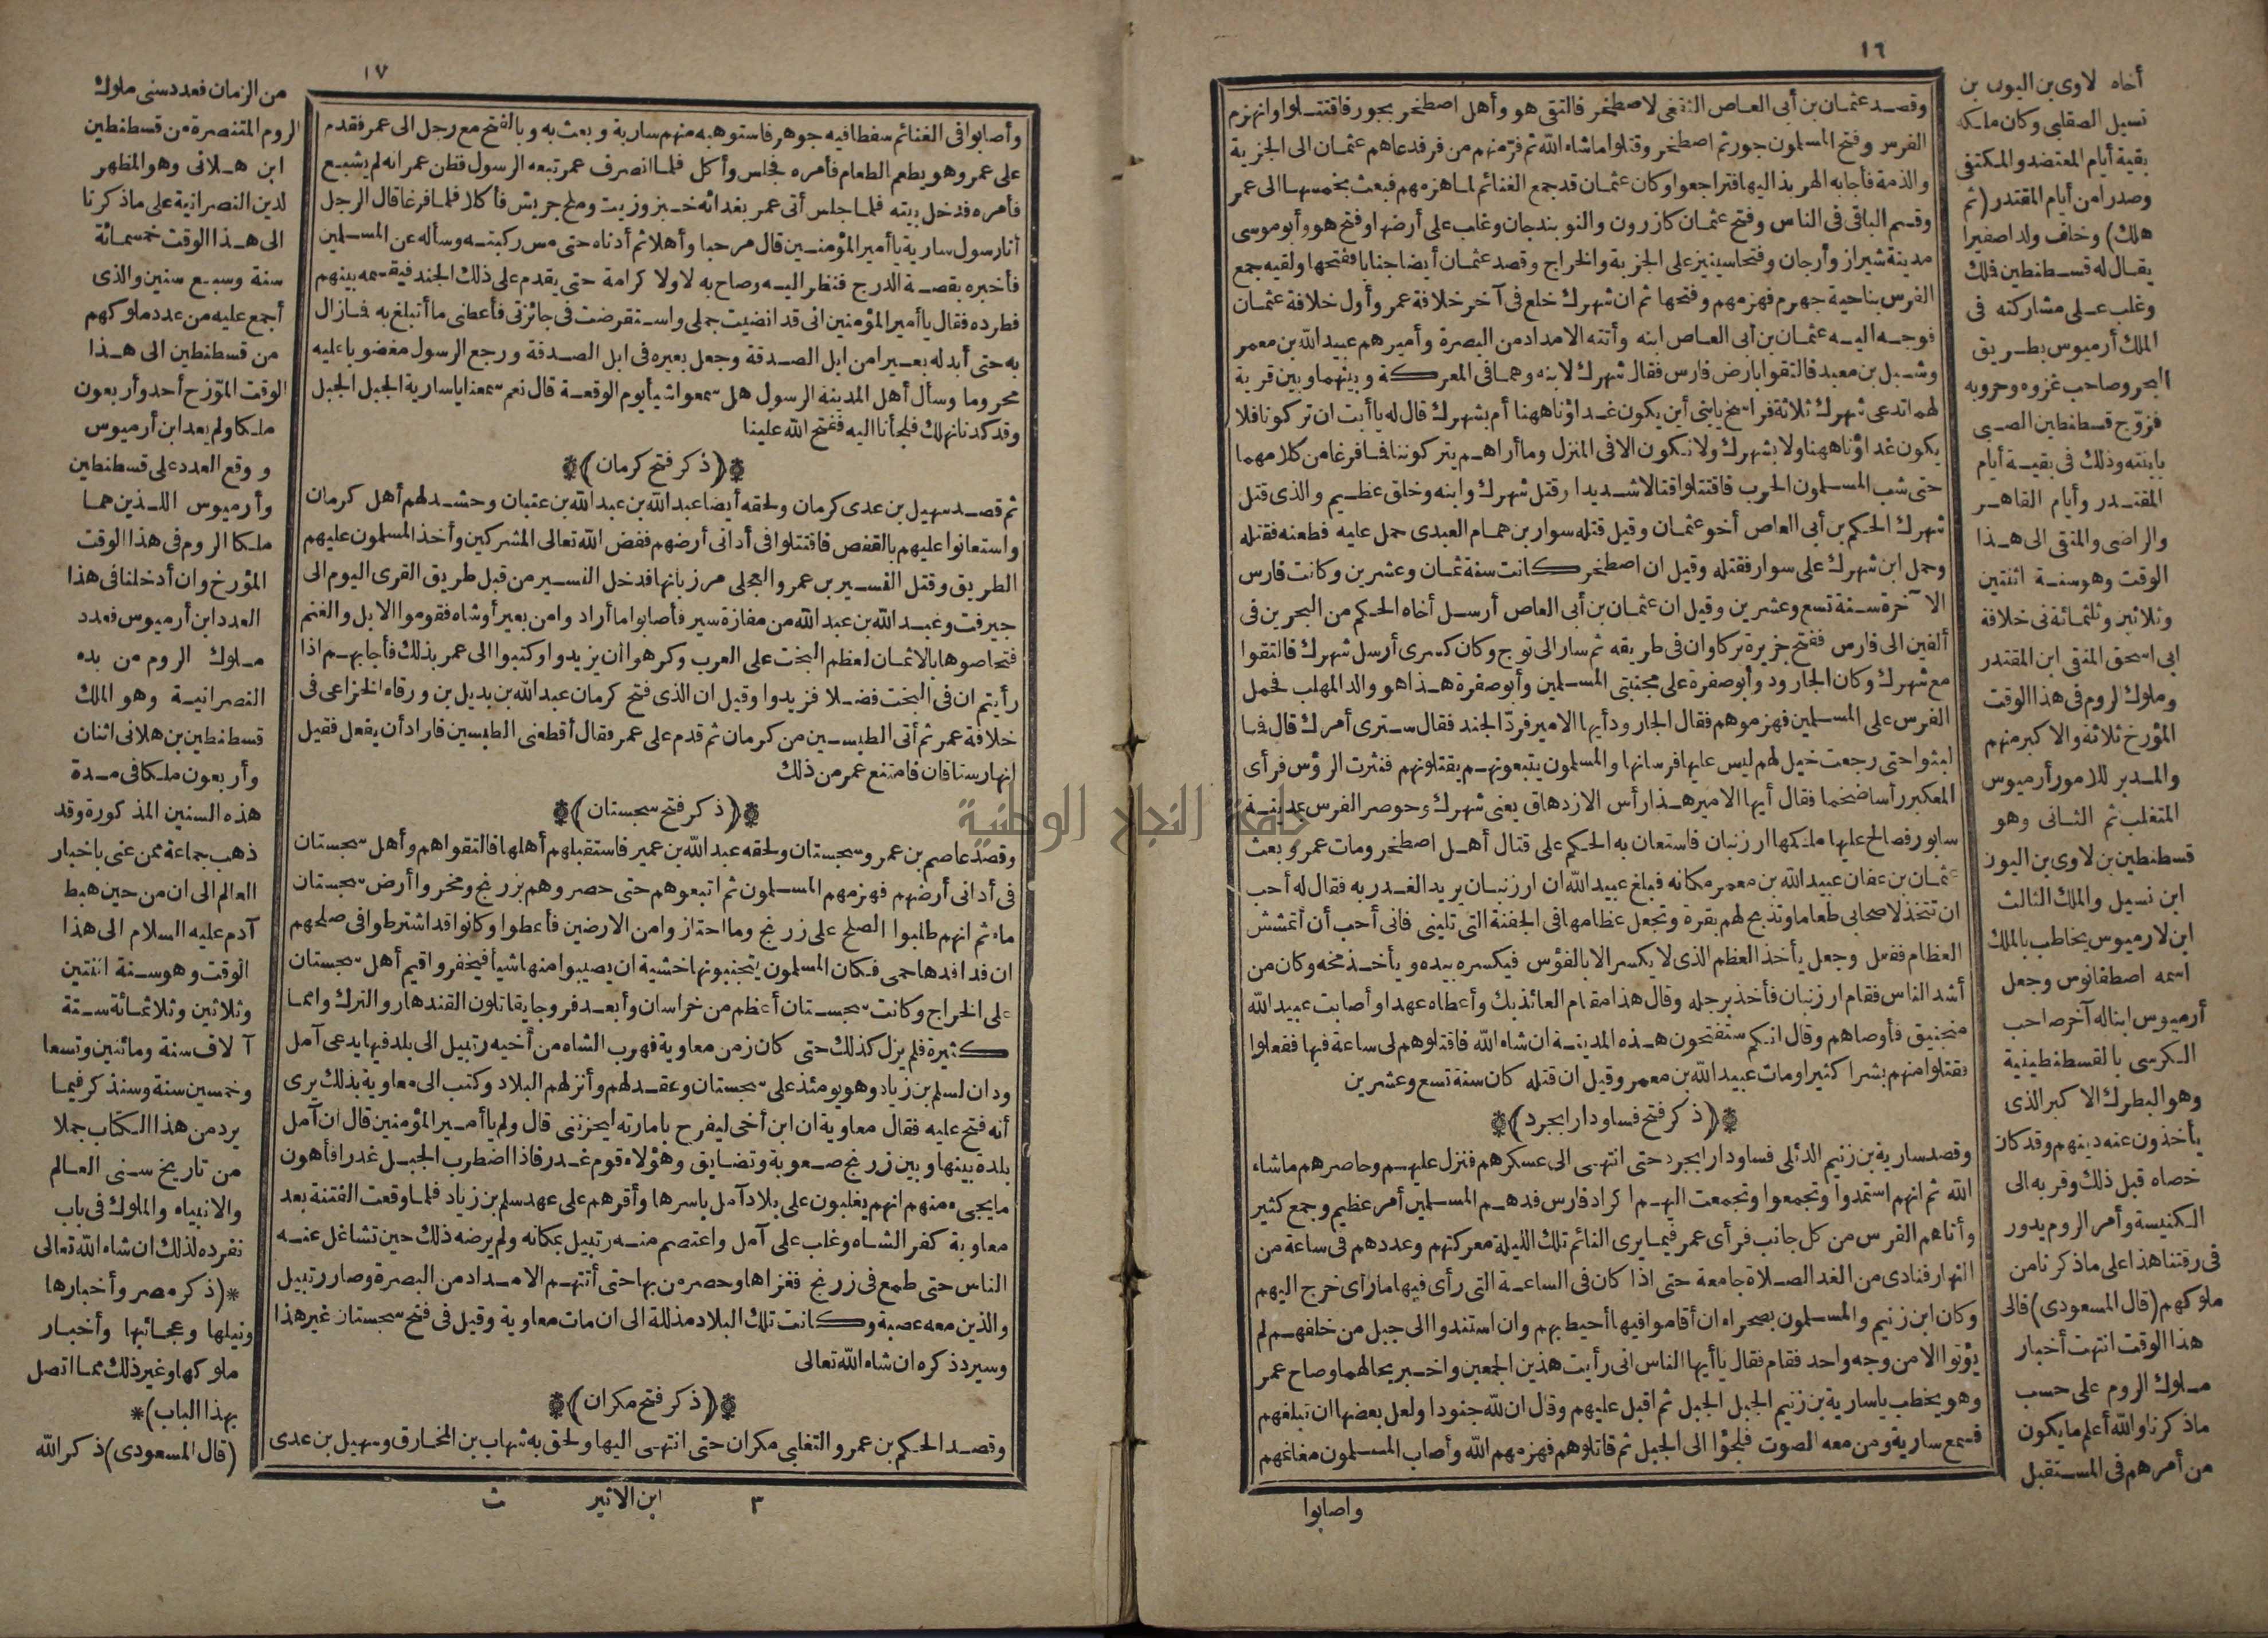 ١٦
وقصد عثمان بن أبى العاص الثقفى لاصطخر فالتقى هو وأهل اصطخر بجور فاقتتلوا وانهزم
الفرس وفتح المسلمون جور ثم اصطخر وقتلوا ماشاء الله ثم فرّ منهم من فر فدعاهم عثمان الى الجزية
والذمة فأجابه الهربذ اليها فتراجعوا وكان عثمان قد جمع الغنائم لما هزمهم فبعث بخمسها الى عمر
وقسم الباقى فى الناس وفتح عثمان كازرون والنوبندجان وغلب على أرضها وفتح هو وأبو موسى
مدينة شيراز وأرجان وفتحا سينيز على الجزية والخراج وقصد عثمان أيضا جنابا ففتحها ولقيه جمع
الفرس بناحية جهرم فهزمهم وفتحها ثم ان شهرك خلع فى آخر خلافة عمر وأول خلافة عثمان
فوجه اليه عثمان بن أبى العاص ابنه وأتته الامداد من البصرة وأميرهم عبيد الله بن معمر
وشبل بن معبد فالتقوا بارض فارس فقال شهرك لابنه وهما فى المعركة وبينهما وبين قرية
لهما تدعى شهرك ثلاثة فراسخ يابنى أين يكون غداؤنا ههنا أم بشهرك قال له ياأبت ان تركونا فلا
يكون غداؤنا ههنا ولا بشهرك ولا نكون الا فى المنزل وما أراهم يتركوننا فما فرغا من كلامهما
حتى شب المسلمون الحرب فاقتتلوا قتالا شديدا وقتل شهرك وابنه وخلق عظيم والذى قتل
شهرك الحكم بن أبى العاص أخو عثمان وقيل قتله سوار بن همام العبدى حمل عليه فطعنه فقتله
وحمل ابن شهرك على سوار فقتله وقيل ان اصطخر كانت سنة ثمان وعشرين وكانت فارس
الآخرة سنة تسع وعشرين وقيل ان عثمان بن أبى العاص أرسل أخاه الحكم من البحرين فى
ألفين الى فارس ففتح جزيرة بركاوان فى طريقه ثم سار الى توج وكان كسرى أرسل شهرك فالتقوا
مع شهرك وكان الجارود وأبو صفرة على مجنبتى المسلمين وأبو صفرة هذا هو والد المهلب فحمل
الفرس على المسلمين فهزموهم فقال الجارود أيها الامير فردّ الجند فقال سترى أمرك قال فما
لبثوا حتى رجعت خيل لهم ليس عليها فرسانها والمسلمون يتبعونهم يقتلونهم فنثرت الرؤس فرأى
المعكبر رأسا ضخما فقال أيها الامير هذا رأس الازدهاق يعنى شهرك وحوصر الفرس بمدينة
سابور فصالح عليها ملكها ارزنبان فاستعان به الحكم على قتال أهل اصطخر ومات عمر وبعث
عثمان بن عفان عبيد الله بن معمر مكانه فبلغ عبيد الله ان ارزنبان يريد الغدر به فقال له أحب
ان تتخذ لاصحابى طعاما وتذبح لهم بقرة وتجعل عظامها فى الجفنة التى تلينى فانى أحب أن أتمشش
العظام ففعل وجعل يأخذ العظم الذى لا يكسر الا بالفؤس فيكسره بيده ويأخذ مخه وكان من
أشد الناس فقام ارزنبان فأخذ برجله وقال هذا مقام العائذ بك وأعطاه عهدا وأصابت عبيد الله
منجنيق فأوصاهم وقال انكم ستفتحون هذه المدينة ان شاء الله فاقتلوهم لى ساعة فيها ففعلوا
فقتلوا منهم بشرا كثيرا ومات عبيد الله بن معمر وقيل ان قتله كان سنة تسع وعشرين
(ذكر فتح فسا ودارابجرد)
وقصد سارية بن زنيم الدئلى فسا ودارابجرد حتى انتهى الى عسكرهم فنزل عليهم وحاصرهم ماشاء
الله ثم انهم استمدوا وتجمعوا وتجمعت اليهم اكراد فارس فدهم المسلمين أمر عظيم وجمع كثير
وأتاهم الفرس من كل جانب فرأى عمر فيما يرى النائم تلك الليلة معركتهم وعددهم فى ساعة من
النهار فنادى من الغد الصلاة جامعة حتى اذا كان فى الساعة التى رأى فيها ما رأى خرج اليهم
وكان ابن زنيم والمسلمون بصحراء ان أقاموا فيها أحيط بهم وان استندوا الى جبل من خلفهم لم
يؤتوا الا من وجه واحد فقام فقال ياأيها الناس انى رأيت هذين الجمعين وأخبر بحالهما وصاح عمر
وهو يخطب ياسارية بن زنيم الجبل الجبل ثم اقبل عليهم وقال ان لله جنودا ولعل بعضها ان تبلغهم
فسمع سارية ومن معه الصوت فلجؤا الى الجبل ثم قاتلوهم فهزمهم الله وأصاب المسلمون مغانمهم
واصابوا
أخاه لاوى بن اليون بن
نسيل الصقلبى وكان ملكه
بقية أيام المعتضد والمكتفى
وصدرا من أيام المقتدر (ثم
هلك) وخلف ولدا صغيرا
يقال له قسطنطين فملك
وغلب على مشاركته فى
الملك أرميوس بطريق
البحر وصاحب غزوه وحروبه
فزوّج قسطنطين الصبى
بابنته وذلك فى بقية أيام
المقتدر وأيام القاهر
والراضى والمتقى الى هذا
الوقت وهو سنة اثنتين
وثلاثين وثلثمائة فى خلافة
ابى اسحق المتقى ابن المقتدر
وملوك الروم فى هذا الوقت
المؤرخ ثلاثة والاكبر منهم
والمدبر للامور أرميوس
المتغلب ثم الثانى وهو
قسطنطين بن لاوى بن اليون
ابن نسيل والملك الثالث
ابن لارميوس يخاطب بالملك
اسمه اصطفانوس وجعل
أرميوس ابنا له آخر صاحب
الكرسى بالقسطنطينية
وهو البطرك الاكبر الذى
يأخذون عنه دينهم وقد كان
خصاه قبل ذلك وقربه الى
الكنيسة وأمر الروم يدور
فى وقتنا هذا على ما ذكرنا من
ملوكهم (قال المسعودى) فالى
هذا الوقت انتهت أخبار
ملوك الروم على حسب
ما ذكرنا والله أعلم ما يكون
من أمرهم فى المستقبل
١٧
وأصابوا فى الغنائم سفطا فيه جوهر فاستوهبه منهم سارية وبعث به وبالفتح مع رجل الى عمر فقدم
على عمر وهو يطعم الطعام فأمره فجلس وأكل فلما انصرف عمر تبعه الرسول فظن عمر انه لم يشبع
فأمره فدخل بيته فلما جلس أتى عمر بغدائه خبز وزيت وملح جريش فأكلا فلما فرغا قال الرجل
أنا رسول سارية ياأمير المؤمنين قال مرحبا وأهلا ثم أدناه حتى مس ركبته وسأله عن المسلمين
فأخبره بقصة الدرج فنظر اليه وصاح به لا ولا كرامة حتى يقدم على ذلك الجند فيقسمه بينهم
فطرده فقال ياأمير المؤمنين انى قد انضيت جملى واستقرضت فى جائزتى فأعطنى ما أتبلغ به فما زال
به حتى أبدله بعيرا من ابل الصدقة وجعل بعيره فى ابل الصدقة ورجع الرسول مغضوبا عليه
محروما وسأل أهل المدينة الرسول هل سمعوا شيأ يوم الوقعة قال نعم سمعنا ياسارية الجبل الجبل
وقد كدنا نهلك فلجأنا اليه ففتح الله علينا
(ذكر فتح كرمان)
ثم قصد سهيل بن عدى كرمان ولحقه أيضا عبد الله بن عبد الله بن عتبان وحشد لهم أهل كرمان
واستعانوا عليهم بالقفص فاقتتلوا فى أدانى أرضهم ففض الله تعالى المشركين وأخذ المسلمون عليهم
الطريق وقتل النسير بن عمرو العجلى مرزبانها فدخل النسير من قبل طريق القرى اليوم الى
جيرفت وعبد الله بن عبد الله من مفازة سير فأصابوا ما أرادوا من بعير أو شاء فقوموا الابل والغنم
فتحاصوها بالاثمان لعظم البخت على العرب وكرهوا أن يزيدوا وكتبوا الى عمر بذلك فأجابهم اذا
رأيتم ان فى البخت فضلا فزيدوا وقيل ان الذى فتح كرمان عبد الله بن بديل بن ورقاء الخزاعى فى
خلافة عمر ثم أتى الطبسين من كرمان ثم قدم على عمر فقال أقطعنى الطبسين فاراد أن يفعل فقيل
انها رستاقان فامتنع عمر من ذلك
(ذكر فتح سجستان)
وقصد عاصم بن عمرو سجستان ولحقه عبد الله بن عمير فاستقبلهم أهلها فالتقوا هم وأهل سجستان
فى أدانى أرضهم فهزمهم المسلمون ثم اتبعوهم حتى حصروهم بزرنج ومخروا أرض سجستان
ماه ثم انهم طلبوا الصلح على زرنج وما احتازوا من الارضين فأعطوا وكانوا قد اشترطوا فى صلحهم
ان فدافدها حمى فكان المسلمون يتجنبونها خشية ان يصيبوا منها شيأ فيخفروا قيم أهل سجستان
على الخراج وكانت سجستان أعظم من خراسان وأبعد فروجا يقاتلون القندهار والترك وأمما
كثيرة فلم يزل كذلك حتى كان زمن معاوية فهرب الشاه من أخيه رتبيل الى بلد فيها يدعى آمل
ودان لسلم بن زياد وهو يومئذ على سجستان وعقد لهم وأنزلهم البلاد وكتب الى معاوية بذلك يرى
أنه فتح عليه فقال معاوية ان ابن أخى ليفرح بامارته ليحزننى قال ولم ياأمير المؤمنين قال ان آمل
بلدة بينها وبين زرنج صعوبة وتضايق وهؤلاء قوم غدر فاذا اضطرب الحبل غدرا فأهون
مايجىء منهم انهم يغلبون على بلاد آمل باسرها وأقرهم على عهد سلم بن زياد فلما وقعت الفتنة بعد
معاوية كفر الشاه وغلب على آمل واعتصم منه رتبيل بمكانه ولم يرضه ذلك حين تشاغل عنه
الناس حتى طمع فى زرنج فغزاها وحصر من بها حتى أتتهم الامداد من البصرة وصار رتبيل
والذين معه عصبة وكانت تلك البلاد مذللة الى ان مات معاوية وقيل فى فتح سجستان غير هذا
وسيرد ذكره ان شاء الله تعالى
(ذكر فتح مكران)
وقصد الحكم بن عمرو التغلبى مكران حتى انتهى اليها ولحق به شهاب بن المخارق وسهيل بن عدى
٣ ابن الاثير ث
من الزمان فعدد سنى ملوك
الروم المتنصرة من قسطنطين
ابن هلانى وهو المظهر
لدين النصرانية على ما ذكرنا
الى هذا الوقت خمسمائة
سنة وسبع سنين والذى
أجمع عليه من عدد ملوكهم
من قسطنطين الى هذا
الوقت المؤرخ أحد وأربعون
ملكا ولم يعد ابن أرميوس
ووقع العدد على قسطنطين
وأرميوس اللذين هما
ملكا الروم فى هذا الوقت
المؤرخ وان أدخلنا فى هذا
العدد ابن أرميوس فعدد
ملوك الروم من بدء
النصرانية وهو الملك
قسطنطين بن هلانى اثنان
وأربعون ملكا فى مدة
هذه السنين المذكورة وقد
ذهب جماعة ممن عنى باخبار
العالم الى ان من حين هبط
آدم عليه السلام الى هذا
الوقت وهو سنة اثنتين
وثلاثين وثلاثمائة ستة
آلاف سنة ومائتين وتسعا
وخمسين سنة وسنذكر فيما
يرد من هذا الكتاب جملا
من تاريخ سنى العالم
والانبياء والملوك فى باب
نفرده لذلك ان شاء الله تعالى
*(ذكر مصر وأخبارها
ونيلها وعجائبها وأخبار
ملوكها وغير ذلك مما اتصل
بهذا الباب)*
(قال المسعودى) ذكر الله
جامعة النجاح الوطنية